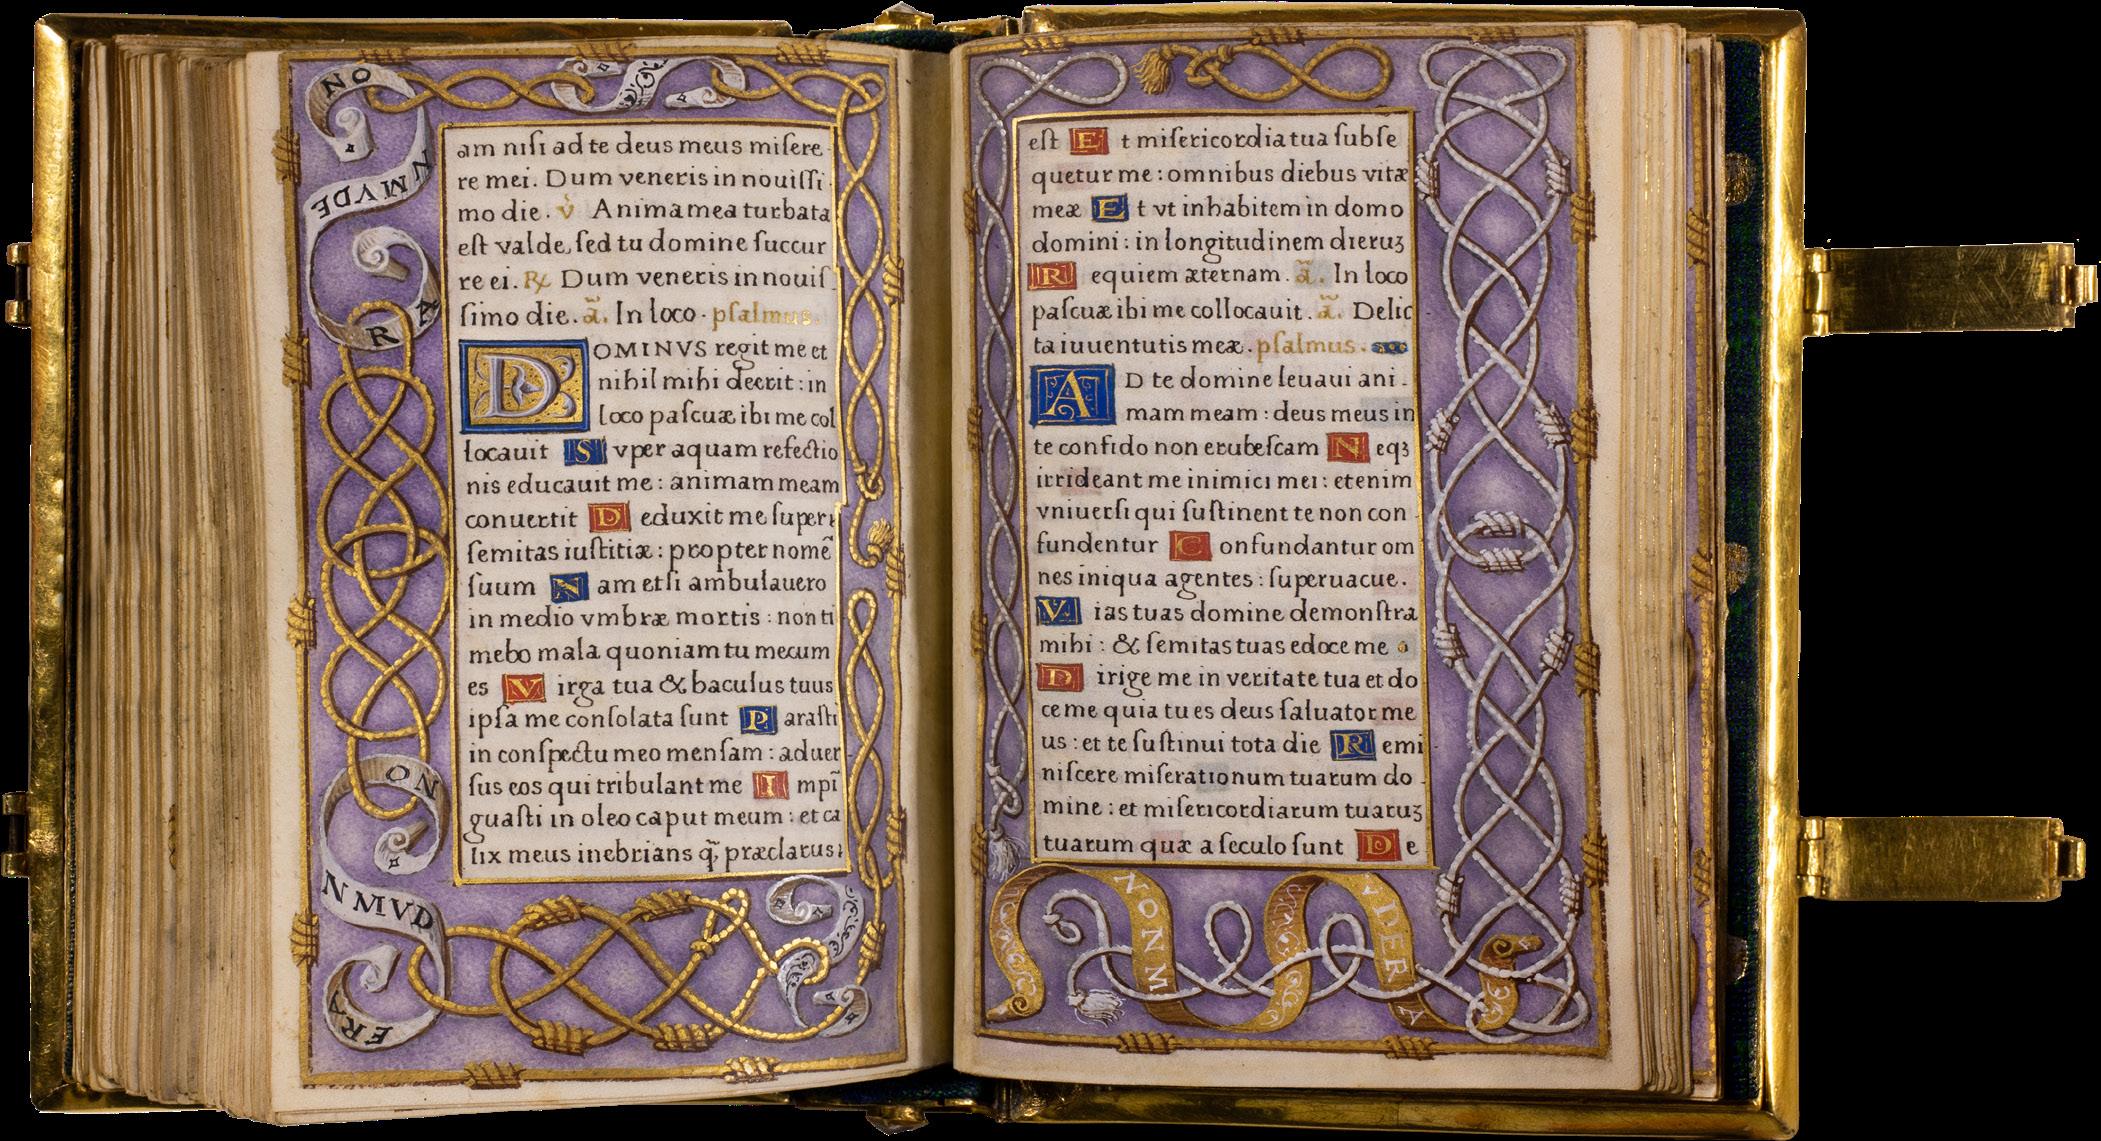 NO
N MVDE
RA
am niſi ad te deus meus miſere-
re mei. Dum veneris in nouiſſi-
mo die. v̇ Anima mea turbata
eſt valde, ſed tu domine ſuccur
re ei. ℞ Dum veneris in nouiſ-
ſimo die. a̅. In loco. pſalmus.
DOMINVS regit me et
nihil mihi deerit: in
loco paſcuæ ibi me col
locauit Svper aquam refectio
nis educauit me: animam meam
conuertit Deduxit me ſuper
ſemitas iuſtitiæ: propter nomē
ſuum Nam et ſi ambulauero
in medio vmbræ mortis: non ti
mebo mala quoniam tu mecum
es Virga tua & baculus tuus
ipſa me conſolata ſunt Paraſti
in conſpectu meo menſam: aduer
ſus eos qui tribulant me Impī
guaſti in oleo caput meum: et ca
lix meus inebrians q̃ præclarus:
NO
N MVD
ERA
eſt Et miſericordia tua ſubſe
quetur me: omnibus diebus vitæ
meæ Et vt inhabitem in domo
domini: in longitudinem dieruꝫ
Requiem æternam. a̅. In loco
paſcuæ ibi me collocauit. a̅. Delic
ta iuuentutis meæ. pſalmus.
AD te domine leuaui ani-
mam meam: deus meus in
te confido non erubeſcam Neqꝫ
irrideant me inimici mei: etenim
vniuerſi qui ſuſtinent te non con
fundentur Confundantur om
nes iniqua agentes: ſuperuacue.
Vias tuas domine demonſtra
mihi: & ſemitas tuas edoce me
Dirige me in veritate tua et do
ce me quia tu es deus ſaluator me
us: et te ſuſtinui tota die Remi
niſcere miſerationum tuarum do-
mine: et miſericordiarum tuaruꝫ
tuarum quæ a ſeculo ſunt De
NON M
VDERA